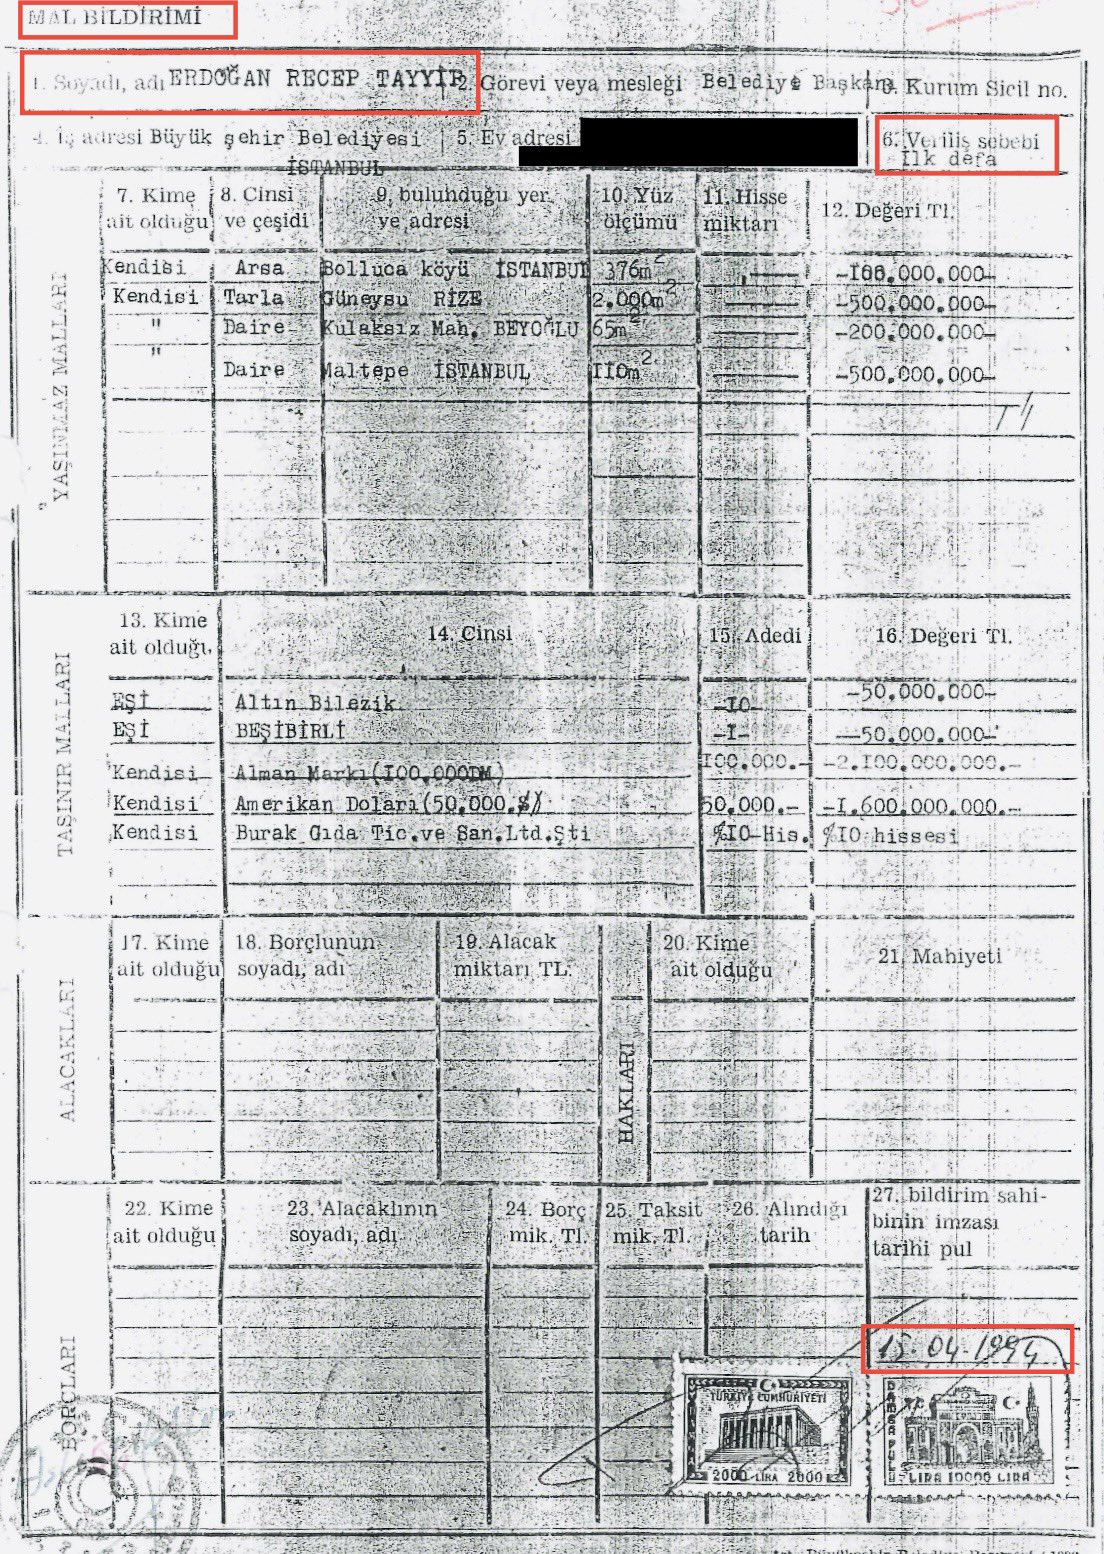 MAL BİLDİRİMİ
1. Soyadı, adı ERDOĞAN RECEP TAYYİP 2. Görevi veya mesleği Belediye Başkanı 3. Kurum Sicil no.
4. İş adresi Büyük şehir Belediyesi 5. Ev adresi 6. Veriliş sebebi
İSTANBUL İlk defa
YAŞINMAZ MALLARI
7. Kime ait olduğu 8. Cinsi ve çeşidi 9. buluhduğu yer ve adresi 10. Yüz ölçümü 11. Hisse miktarı 12. Değeri Tl.
Kendisi Arsa Bolluca köyü İSTANBUL 376m2 -I00.000.000-
Kendisi Tarla Güneysu RİZE 2.000m2 -500.000.000-
" Daire Kulaksız Mah. BEYOĞLU 65m2 -200.000.000-
" Daire Maltepe İSTANBUL II0m2 -500.000.000-
TAŞINIR MALLARI
13. Kime ait olduğu, 14. Cinsi 15. Adedi 16. Değeri Tl.
EŞİ Altın Bilezik -I0- -50.000.000-
EŞİ BEŞİBİRLİ -I- -50.000.000-
Kendisi Alman Markı(I00.000DM) I00.000.- -2.I00.000.000.-
Kendisi Amerikan Doları(50.000.$) 50.000.- -I.600.000.000.-
Kendisi Burak Gıda Tic.ve San.Ltd.Şti %I0 His. %I0 hissesi
ALACAKLARI
17. Kime ait olduğu 18. Borçlunun soyadı, adı 19. Alacak miktarı TL.
HAKLARI
20. Kime ait olduğu 21. Mahiyeti
BORÇLARI
22. Kime ait olduğu 23. Alacaklının soyadı, adı 24. Borç mik. Tl. 25. Taksit mik. Tl. 26. Alındığı tarih 27. bildirim sahibinin imzası tarihi pul
15.04.1994
TÜRKİYE CUMHURİYETİ
2000 LİRA 2000
DAMGA PULU
LİRA 10000 LİRA